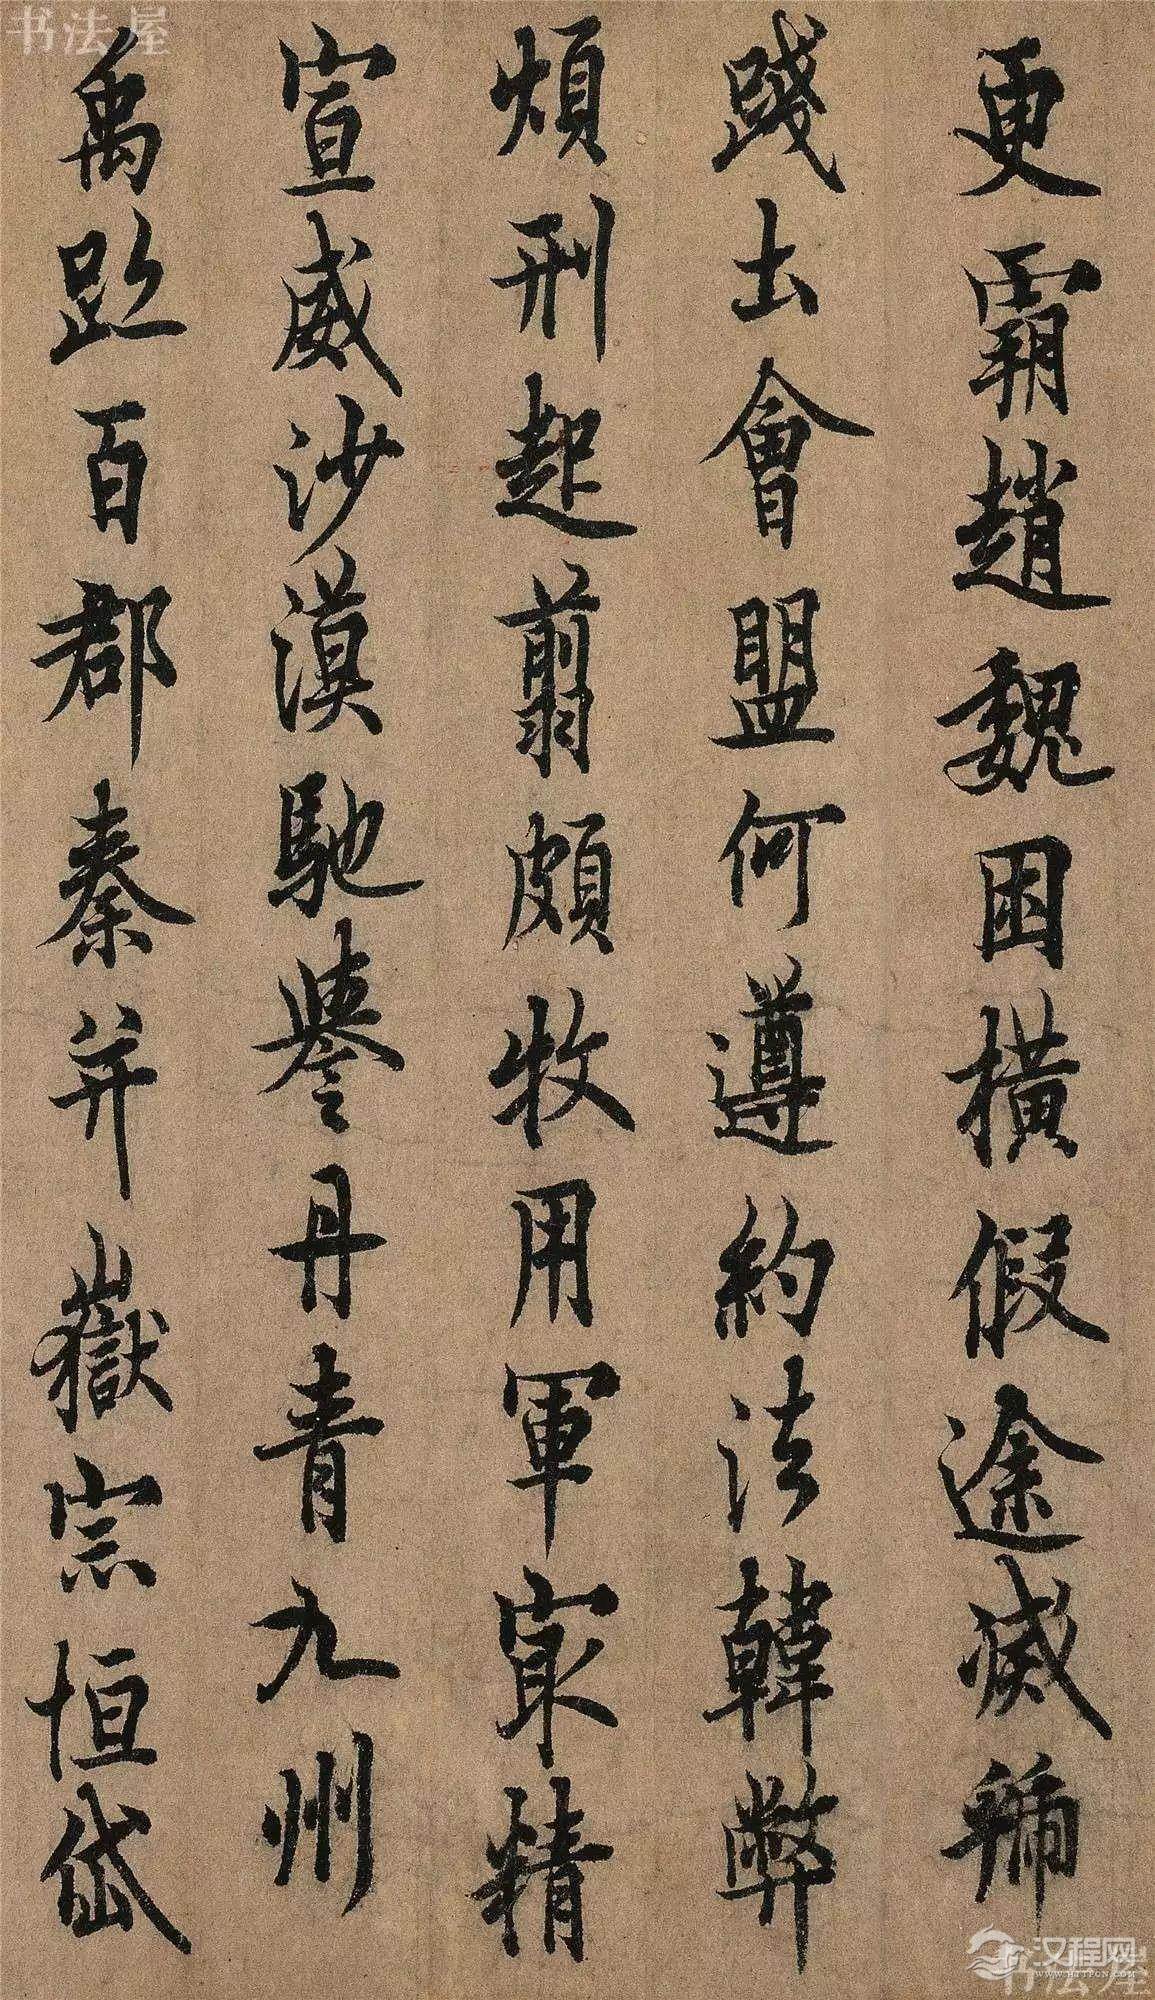 更霸趙魏困橫假途滅虢
踐土會盟何遵約法韓弊
煩刑起翦頗牧用軍最精
宣威沙漠馳譽丹青九州
禹跡百郡秦并嶽宗恒岱
书法屋
汉程网
WWW.HTTPCN.COM
书法屋